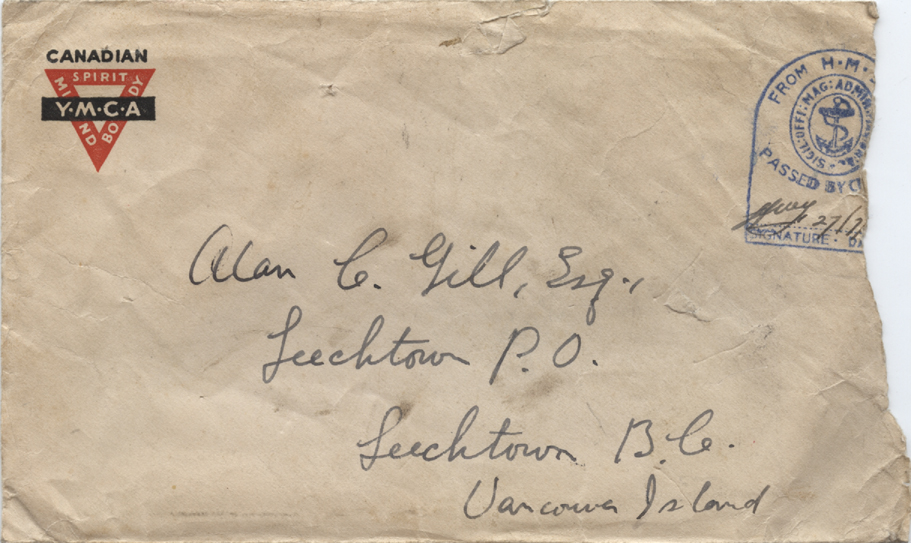 CANADIAN
SPIRIT
MIND
BODY
Y·M·C·A
FROM H·M·
SIGIL: OFFI: MAG: ADMIR
PASSED BY C
27/7
SIGNATURE · D
Alan C. Gill, Esq.,
Leechtown P.O.
Leechtown B.C.
Vancouver Island